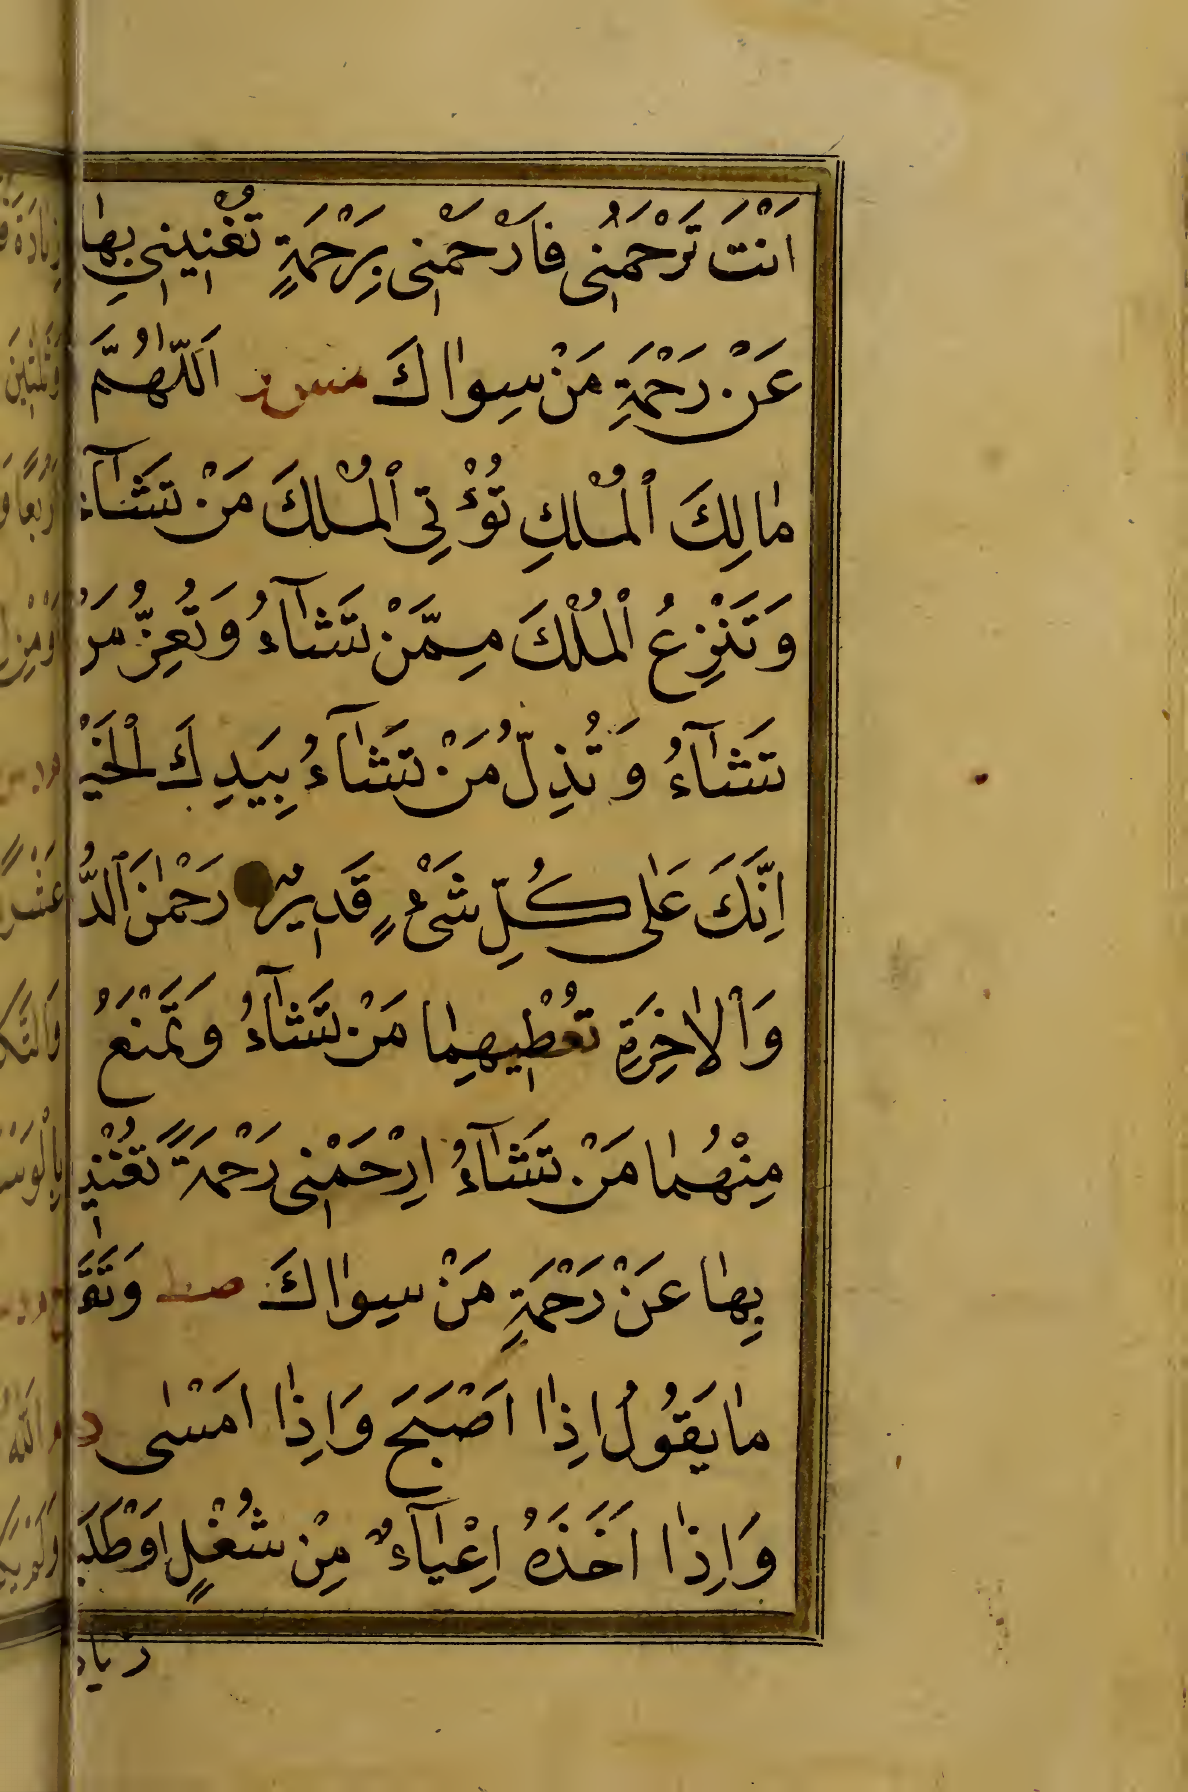 اَنْتَ تَرْحَمُنِي فَارْحَمْنِي بِرَحْمَةٍ تُغْنِينِي بِهَا
عَنْ رَحْمَةِ مَنْ سِوَاكَ مس مر اَللّٰهُمَّ
مَالِكَ الْمُلْكِ تُؤْتِي الْمُلْكَ مَنْ تَشَآءُ
وَتَنْزِعُ الْمُلْكَ مِمَّنْ تَشَآءُ وَتُعِزُّ مَنْ
تَشَآءُ وَتُذِلُّ مَنْ تَشَآءُ بِيَدِكَ الْخَيْرُ
اِنَّكَ عَلٰى كُلِّ شَيْءٍ قَدِيرٌ رَحْمٰنَ الدُّ
وَالْاٰخِرَةِ تُعْطِيهِمَا مَنْ تَشَآءُ وَتَمْنَعُ
مِنْهُمَا مَنْ تَشَآءُ اِرْحَمْنِي رَحْمَةً تُغْنِينِي
بِهَا عَنْ رَحْمَةِ مَنْ سِوَاكَ صط وَتَقَدَّمَ
مَا يَقُولُ اِذَا اَصْبَحَ وَاِذَا اَمْسٰى د
وَاِذَا اَخَذَهُ اِعْيَآءٌ مِنْ شُغْلٍ اَوْ طَلَبَ
زياد